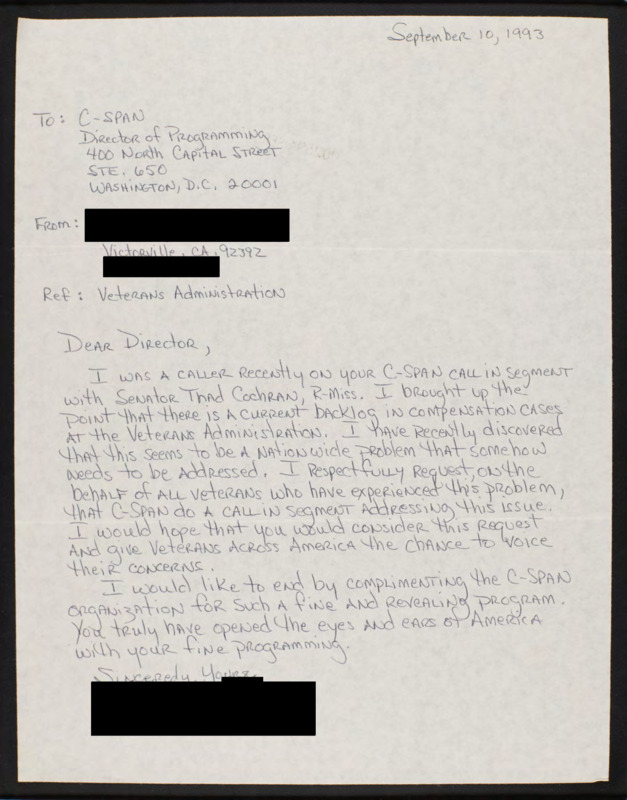 September 10, 1993
To: C-SPAN
Director of Programming
400 North Capital Street
STE. 650
Washington, D.C. 20001
From:
Victorville, CA, 92392
Ref: Veterans Administration
Dear Director,
I was a caller recently on your C-SPAN call in segment
with Senator Thad Cochran, R-Miss. I brought up the
point that there is a current backlog in compensation cases
at the Veterans Administration. I have recently discovered
that this seems to be a nationwide problem that somehow
needs to be addressed. I respectfully request, on the
behalf of all veterans who have experienced this problem,
that C-SPAN do a call in segment addressing this issue.
I would hope that you would consider this request
and give veterans across America the chance to voice
their concerns.
I would like to end by complimenting the C-SPAN
organization for such a fine and revealing program.
You truly have opened the eyes and ears of America
with your fine programming.
Sincerely, Yours,